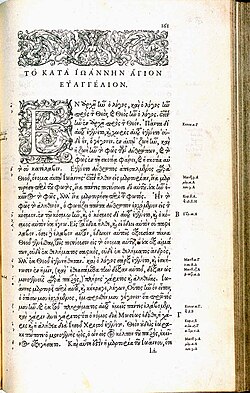 161
ΤΟ ΚΑΤΑ ΙΩΑΝΝΗΝ ΑΓΙΟΝ
ΕΥΑΓΓΕΛΙΟΝ.
ΕΝ ἀρχῇ ἦν ὁ λόγος, καὶ ὁ λόγος ἦν
πρὸς τὸν Θεὸν, καὶ Θεὸς ἦν ὁ λόγος. οὗτος
ἦν ἐν ἀρχῇ πρὸς τὸν Θεόν. Πάντα δι᾿
αὐτοῦ ἐγένετο, καὶ χωρὶς αὐτοῦ ἐγένετο οὐ-
δὲ ἓν, ὃ γέγονεν. ἐν αὐτῷ ζωὴ ἦν, καὶ
ἡ ζωὴ ἦν τὸ φῶς τῶν ἀνθρώπων, καὶ τὸ
φῶς ἐν τῇ σκοτίᾳ φαίνει, καὶ ἡ σκοτία αὐ-
τὸ οὐ κατέλαβεν. Ἐγένετο ἄνθρωπος ἀπεσταλμένος παρὰ
Θεοῦ, ὄνομα αὐτῷ Ἰωάννης. οὗτος ἦλθεν εἰς μαρτυρίαν, ἵνα μαρ-
τυρήσῃ περὶ τοῦ φωτὸς, ἵνα πάντες πιστεύσωσι δι᾿ αὐτοῦ. οὐκ ἦν ἐ-
κεῖνος τὸ φῶς, ἀλλ᾿ ἵνα μαρτυρήσῃ περὶ τοῦ φωτός. Ἦν τὸ
φῶς τὸ ἀληθινὸν, ὃ φωτίζει πάντα ἄνθρωπον ἐρχόμενον εἰς τὸν
κόσμον. ἐν τῷ κόσμῳ ἦν, καὶ ὁ κόσμος δι᾿ αὐτοῦ ἐγένετο, καὶ ὁ
κόσμος αὐτὸν οὐκ ἔγνω. Εἰς τὰ ἴδια ἦλθε, καὶ οἱ ἴδιοι αὐτὸν οὐ παρέ-
λαβον. ὅσοι δὲ ἔλαβον αὐτὸν, ἔδωκεν αὐτοῖς ἐξουσίαν τέκνα
Θεοῦ γενέσθαι, τοῖς πιστεύουσιν εἰς τὸ ὄνομα αὐτοῦ. οἳ οὐκ ἐξ αἱμά-
των, οὐδὲ ἐκ θελήματος σαρκὸς, οὐδὲ ἐκ θελήματος ἀνδρὸς,
ἀλλ᾿ ἐκ Θεοῦ ἐγεννήθησαν. καὶ ὁ λόγος σὰρξ ἐγένετο, καὶ ἐσκή-
νωσεν ἐν ἡμῖν, (καὶ ἐθεασάμεθα τὴν δόξαν αὐτοῦ, δόξαν ὡς μο-
νογενοῦς παρὰ πατρὸς,) πλήρης χάριτος καὶ ἀληθείας. Ἰωάν-
νης μαρτυρεῖ περὶ αὐτοῦ, καὶ κέκραγε, λέγων, Οὗτος ἦν ὃν εἶπον,
ὁ ὀπίσω μου ἐρχόμενος, ἔμπροσθέν μου γέγονεν· ὅτι πρῶτός
μου ἦν. καὶ ἐκ τοῦ πληρώματος αὐτοῦ ἡμεῖς πάντες ἐλάβομεν,
καὶ χάριν ἀντὶ χάριτος· ὅτι ὁ νόμος διὰ Μωσέως ἐδόθη, ἡ χά-
ρις καὶ ἡ ἀλήθεια διὰ Ἰησοῦ Χριστοῦ ἐγένετο. Θεὸν οὐδεὶς ἑώρα-
κε πώποτε· ὁ μονογενὴς υἱὸς, ὁ ὢν εἰς τὸν κόλπον τοῦ πατρὸς, ἐκεῖ-
νος ἐξηγήσατο. Καὶ αὕτη ἐστὶν ἡ μαρτυρία τοῦ Ἰωάννου, ὅτε